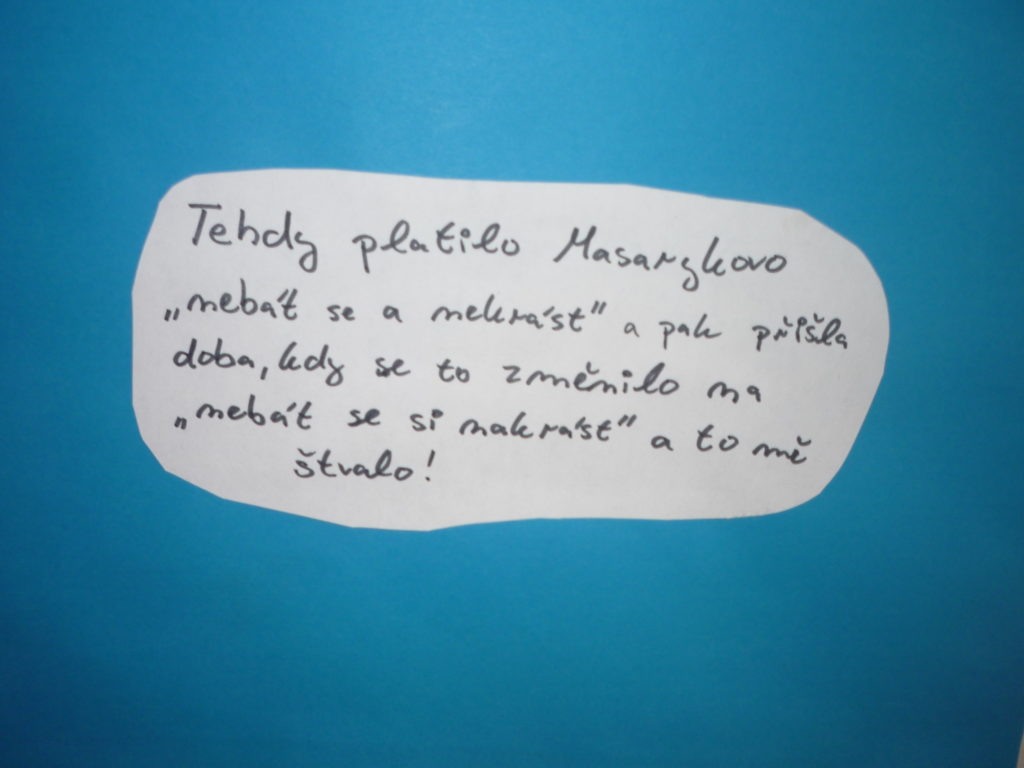 Tehdy platilo Masarykovo
„nebát se a nekrást" a pak příšla
doba, kdy se to změnilo na
„nebát se si nakrást" a to mě
štvalo!